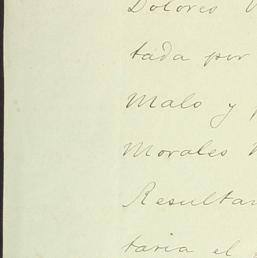 Dolores
tada por
Malo y
Morales
Resultan
taria el